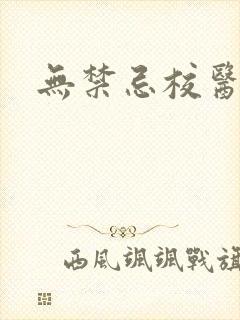 無禁忌校醫
西風颯颯戰旗